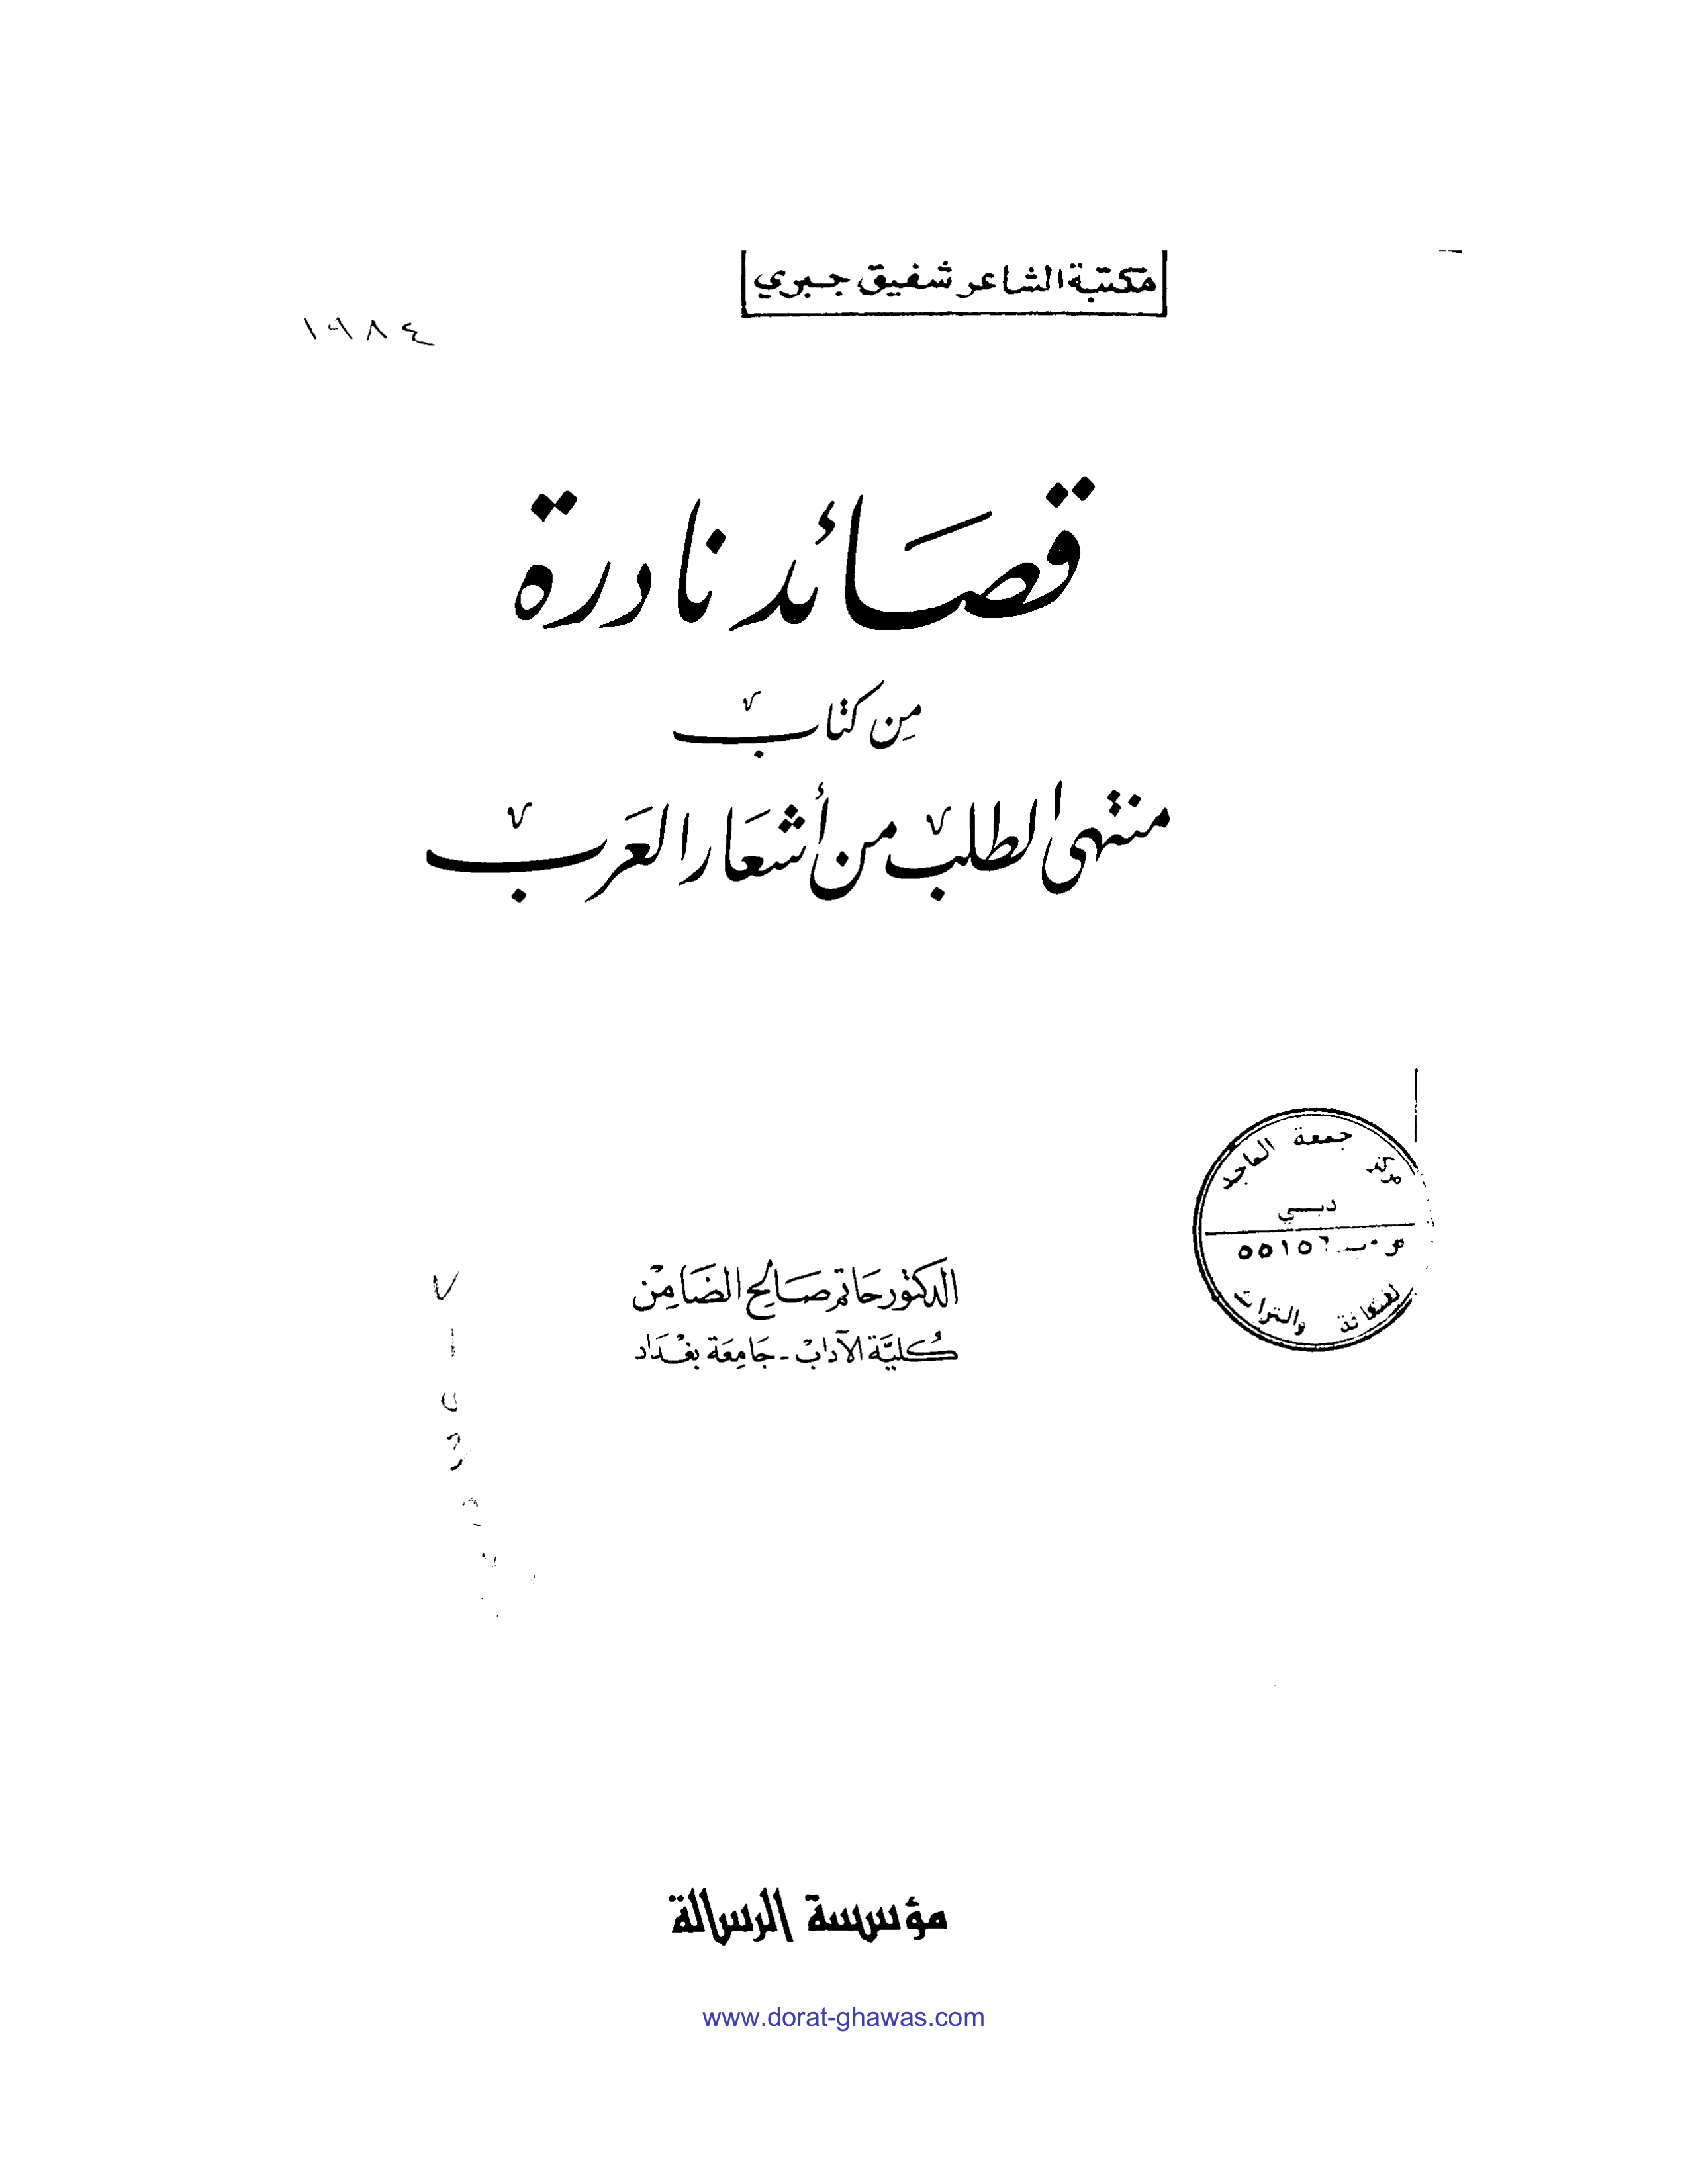 مكتبة الشاعر شفيق جبري
١٩٨٤
قصَائد نادرة
مِن كتاب
منتهى الطلب من أشعَار العَرب
جمعة الماجد
مركز
دبي
ص.ب
للثقافة والتراث
الدكتور حَاتم صَالِح الضَامِنْ
كُليَّة الآدابْ - جَامِعَة بغْدَاد
مؤسسة الرسالة
www.dorat-ghawas.com